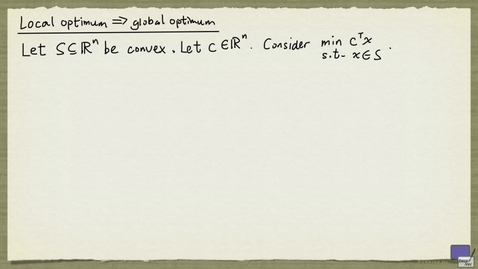 Local optimum ⇒ global optimum
Let S⊆ℝⁿ be convex. Let c∈ℝⁿ. Consider min cᵀx
s.t. x∈S.